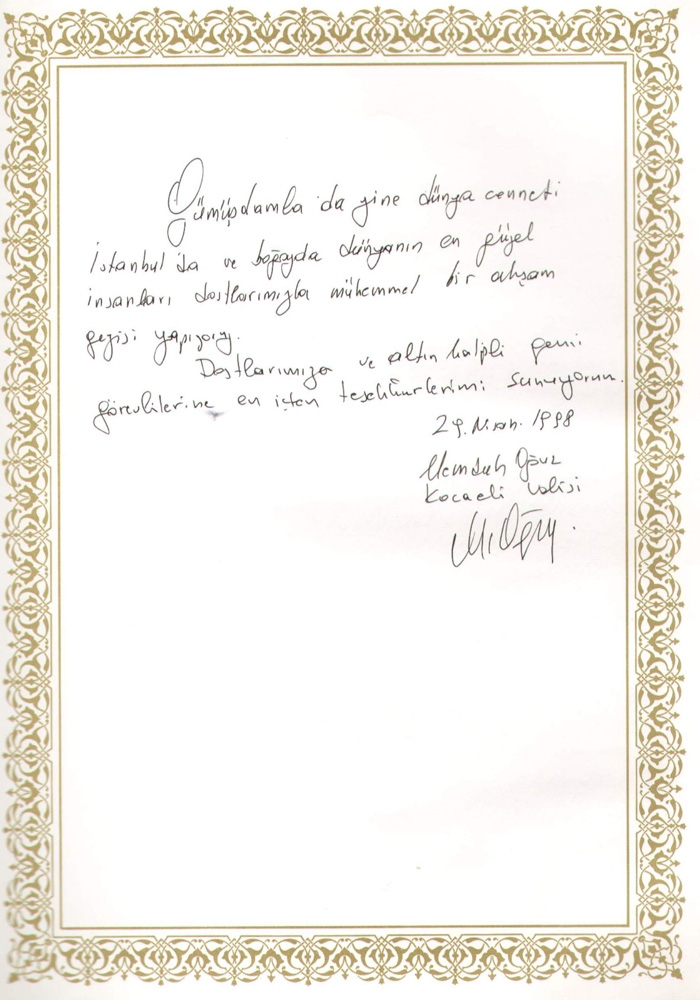 Gümüşdamla'da yine dünya cenneti
İstanbul'da ve boğazda dünyanın en güzel
insanları dostlarımızla mükemmel bir akşam
gezisi yapıyoruz.
Dostlarımıza ve altın kalpli gemi
görevlilerine en içten teşekkürlerimi sunuyorum.
29. Nisan. 1998
Memduh Oğuz
Kocaeli Valisi
M. Oğuz